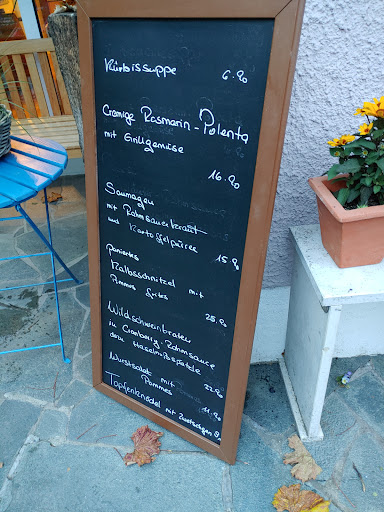 Kürbissuppe 6.90
Cremige Rosmarin - Polenta
mit Grillgemüse
16.90
Saumagen
mit Rahmsauerkraut
und Kartoffelpüree 15.90
paniertes
Kalbsschnitzel mit
Pommes frites 25.90
Wildschweinbraten
in Cranberry-Rahmsauce
dazu Haselnußspätzle 22.90
Wurstsalat mit
Pommes 11.90
Topfenknödel mit Zwetschgen